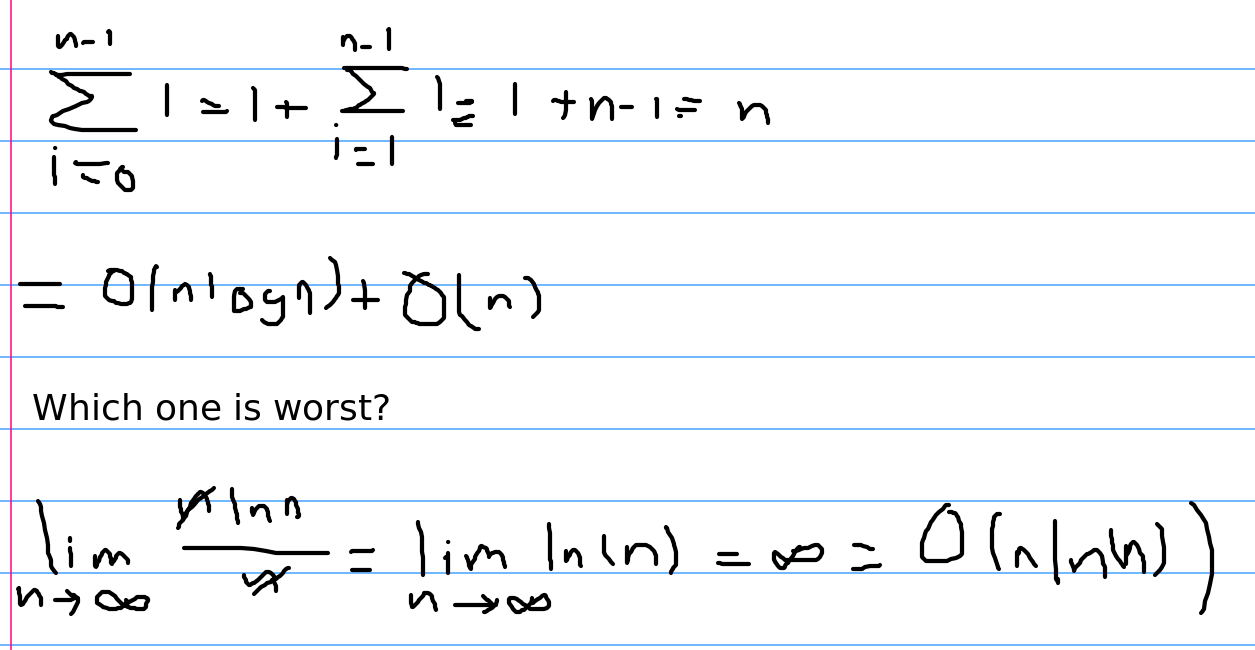 \sum_{i=0}^{n-1} 1 = 1 + \sum_{i=1}^{n-1} 1 = 1 + n - 1 = n
= O(n log n) + O(n)
Which one is worst?
\lim_{n \to \infty} \frac{\cancel{n} \ln n}{\cancel{n}} = \lim_{n \to \infty} \ln(n) = \infty = O(n \ln(n))